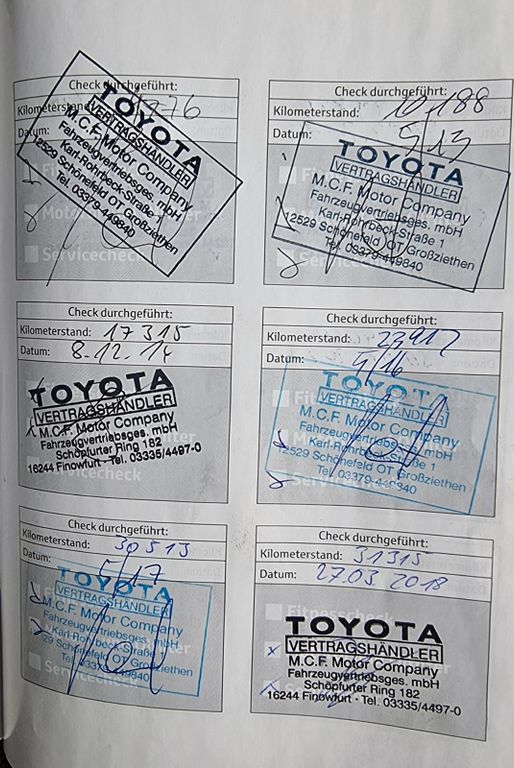 Check durchgeführt:
Kilometerstand:
Datum:
TOYOTA
VERTRAGSHÄNDLER
M.C.F. Motor Company
Fahrzeugvertriebsges. mbH
Karl-Rohrbeck-Straße
12529 Schönefeld OT Großziethen
Tel. 03379-449840
Servicecheck
Check durchgeführt:
Kilometerstand: 10.188
Datum: 5/13
TOYOTA
VERTRAGSHÄNDLER
M.C.F. Motor Company
Fahrzeugvertriebsges. mbH
Karl-Rohrbeck-Straße 1
12529 Schönefeld OT Großziethen
Tel. 03379-449840
Servicecheck
Check durchgeführt:
Kilometerstand: 17315
Datum: 8.12.14
TOYOTA
VERTRAGSHÄNDLER
M.C.F. Motor Company
Fahrzeugvertriebsges. mbH
Schöpfurter Ring 182
16244 Finowfurt - Tel. 03335/4497-0
Servicecheck
Check durchgeführt:
Kilometerstand:
Datum: 5/16
TOYOTA
VERTRAGSHÄNDLER
M.C.F. Motor Company
Fahrzeugvertriebsges. mbH
Karl-Rohrbeck-Straße 1
12529 Schönefeld OT Großziethen
Tel. 03379-449840
Servicecheck
Check durchgeführt:
Kilometerstand: 30513
Datum: 5/17
TOYOTA
VERTRAGSHÄNDLER
M.C.F. Motor Company
Fahrzeugvertriebsges. mbH
Karl-Rohrbeck-Straße
12529 Schönefeld OT Großziethen
Tel. 03379-449840
Servicecheck
Check durchgeführt:
Kilometerstand: 31315
Datum: 27.03.2018
Fitnesscheck
TOYOTA
VERTRAGSHÄNDLER
M.C.F. Motor Company
Fahrzeugvertriebsges. mbH
Schöpfurter Ring 182
16244 Finowfurt - Tel. 03335/4497-0